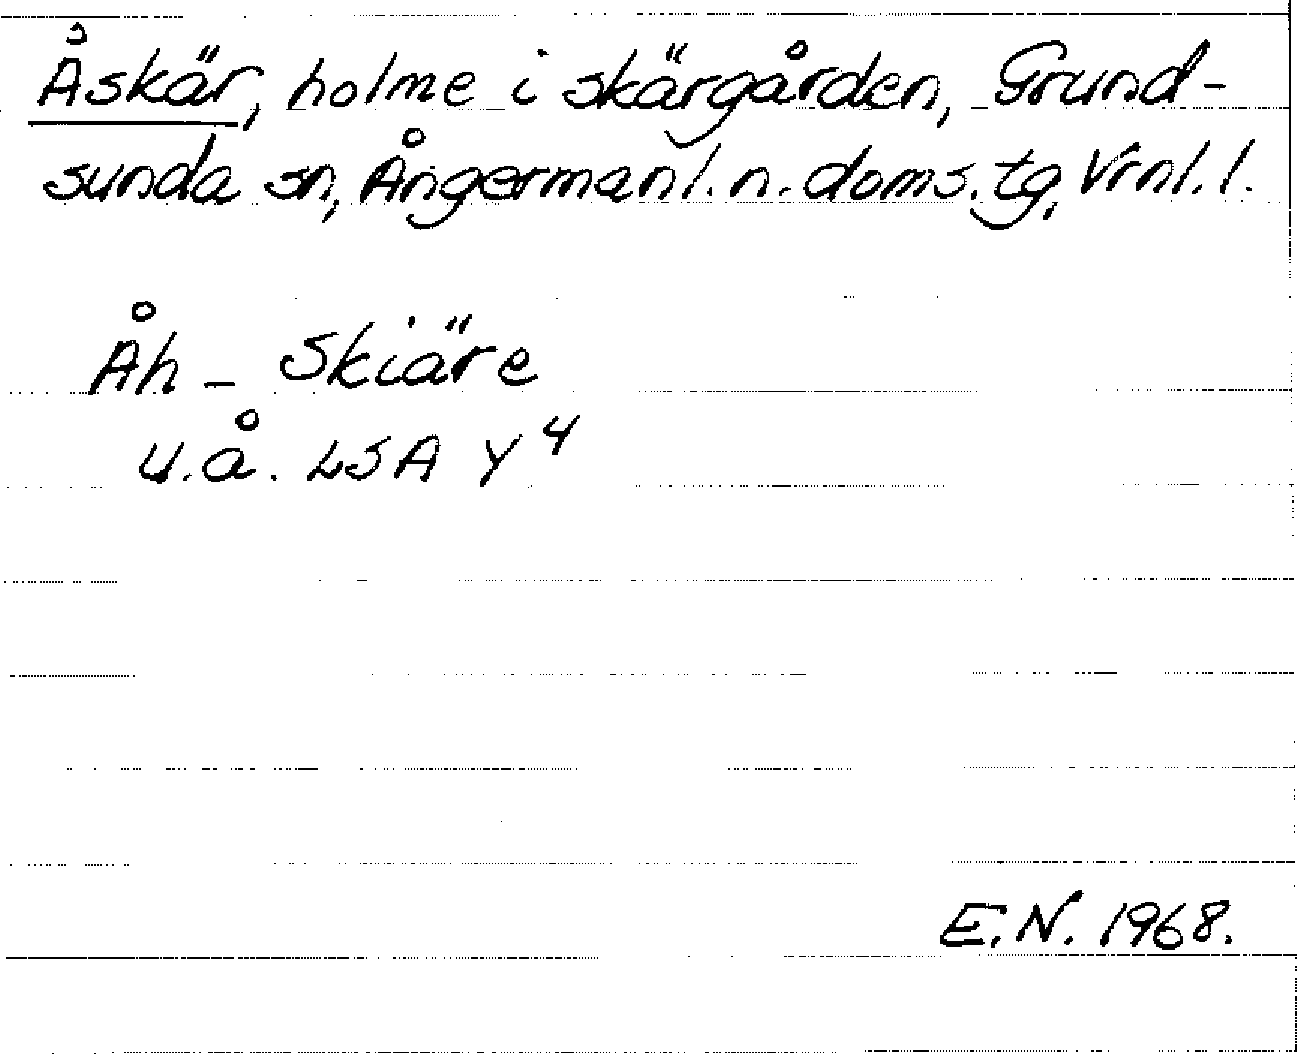 Åskär, holme i skärgården, Grund-
sunda sn, Ångermanl. n. doms. tg, Vrnl. l.
Åh - Skiäre
u.å. LSA Y 4
E.N. 1968.